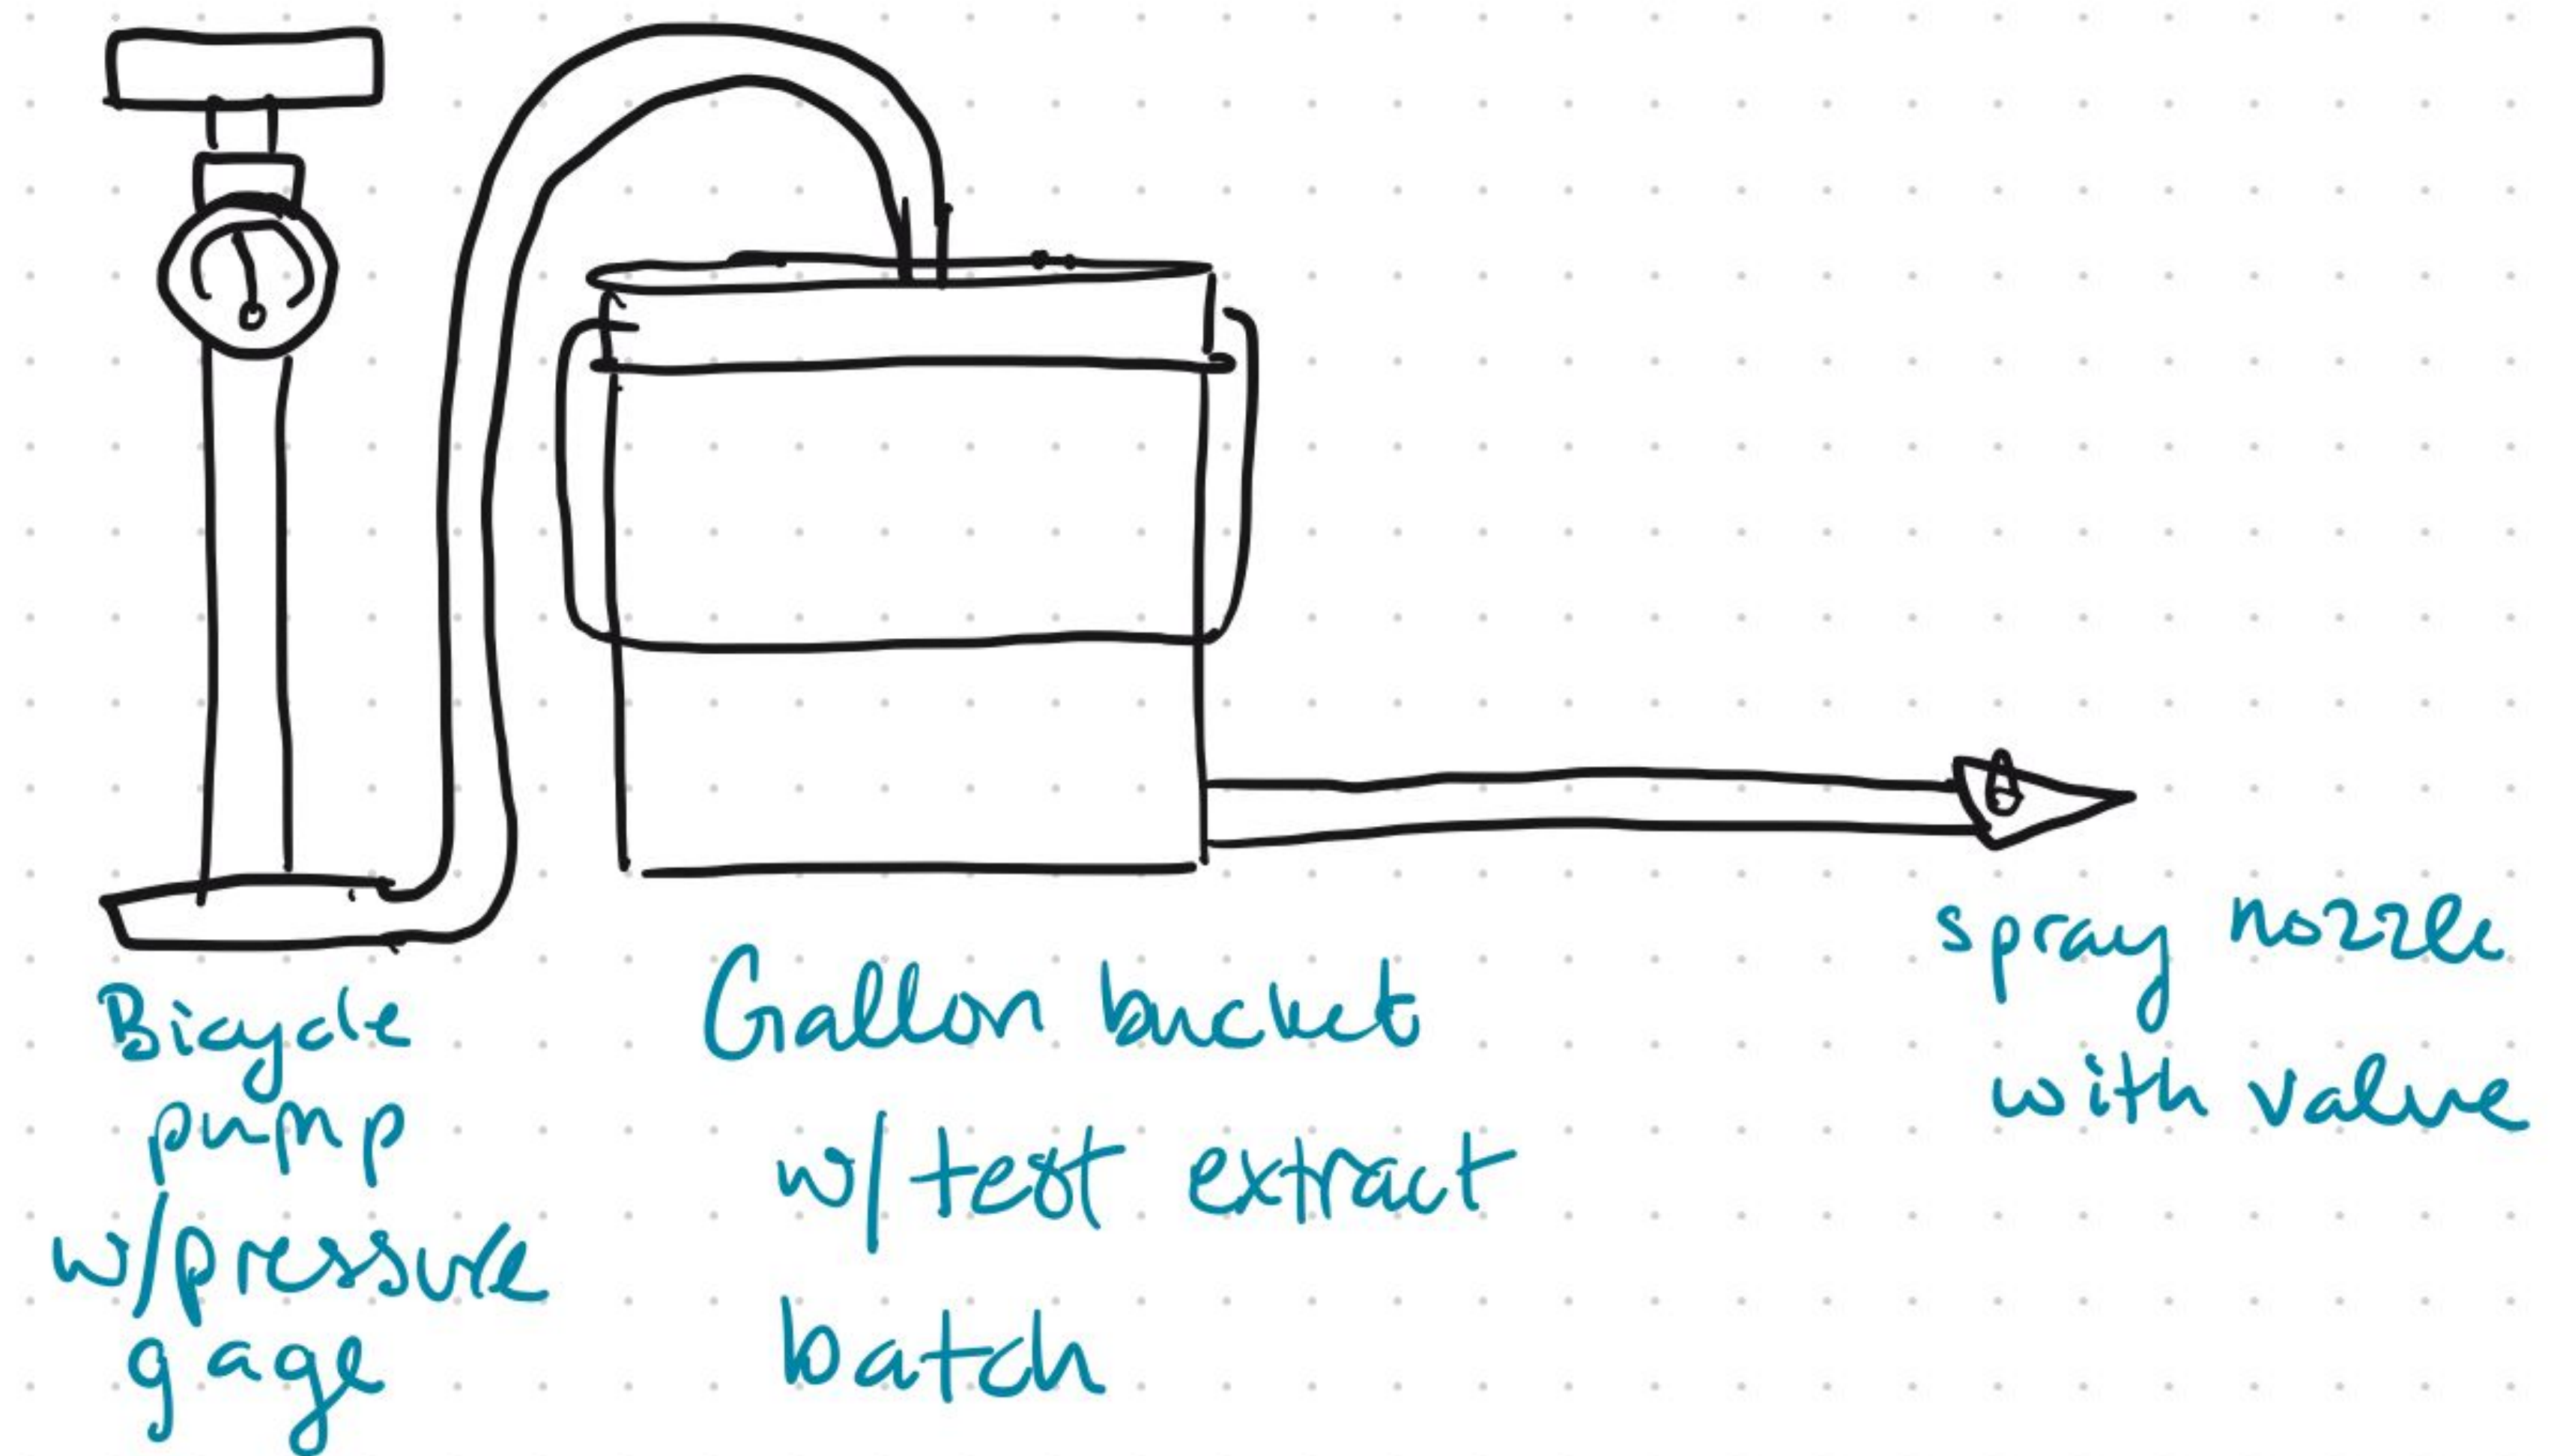 Bicycle
pump
w/pressure
gage
Gallon bucket
w/ test extract
batch
spray nozzle
with valve